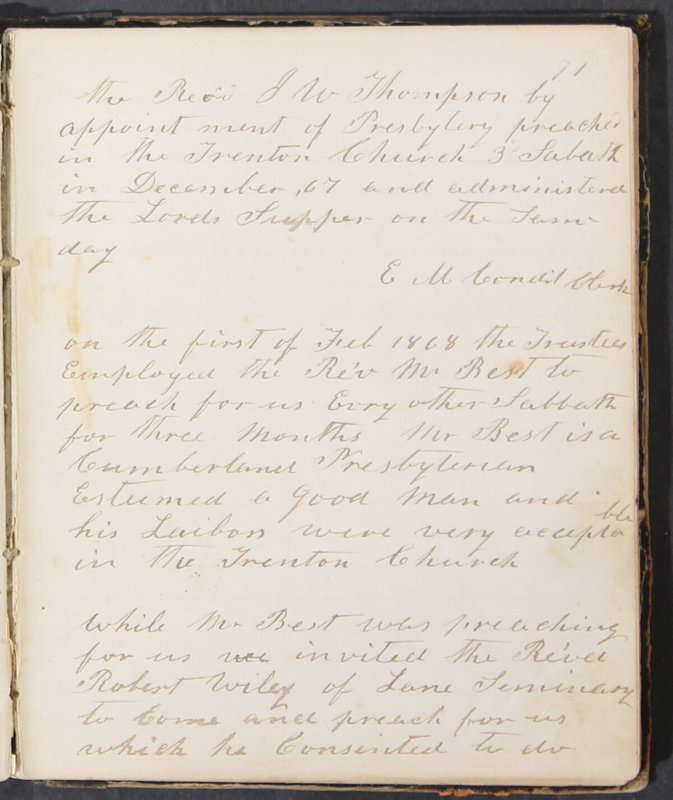 71
the Revd J W Thompson by
appoint ment of Presbytery preached
in the Trenton Church 3d Sabath
in December, 67 and administered
the Lords Supper on the Same
day
E M Condit Clerk
on the first of Feb 1868 the Trustees
Employed the Rev Mr Best to
preach for us Evry other Sabbath
for three Months Mr Best is a
Cumberland Presbyterian
Esteemed a Good Man and
his Laibors were very accepta ble
in the Trenton Church
While Mr Best was preaching
for us we invited the Revd
Robert Wiley of Lane Seminary
to Come and preach for us
which he Consented to do